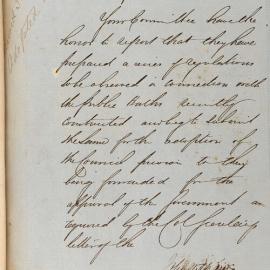 Your Committee have the
honor to report that they have
prepared a series of regulations
to be observed in connection with
the public Baths recently
constructed and beg to submit
the same for the adoption of
the Council previous to they
being forwarded for the
approval of the Government as
required by the Col
letter of the